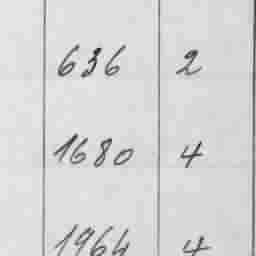 636 2
1680 4
1964 4